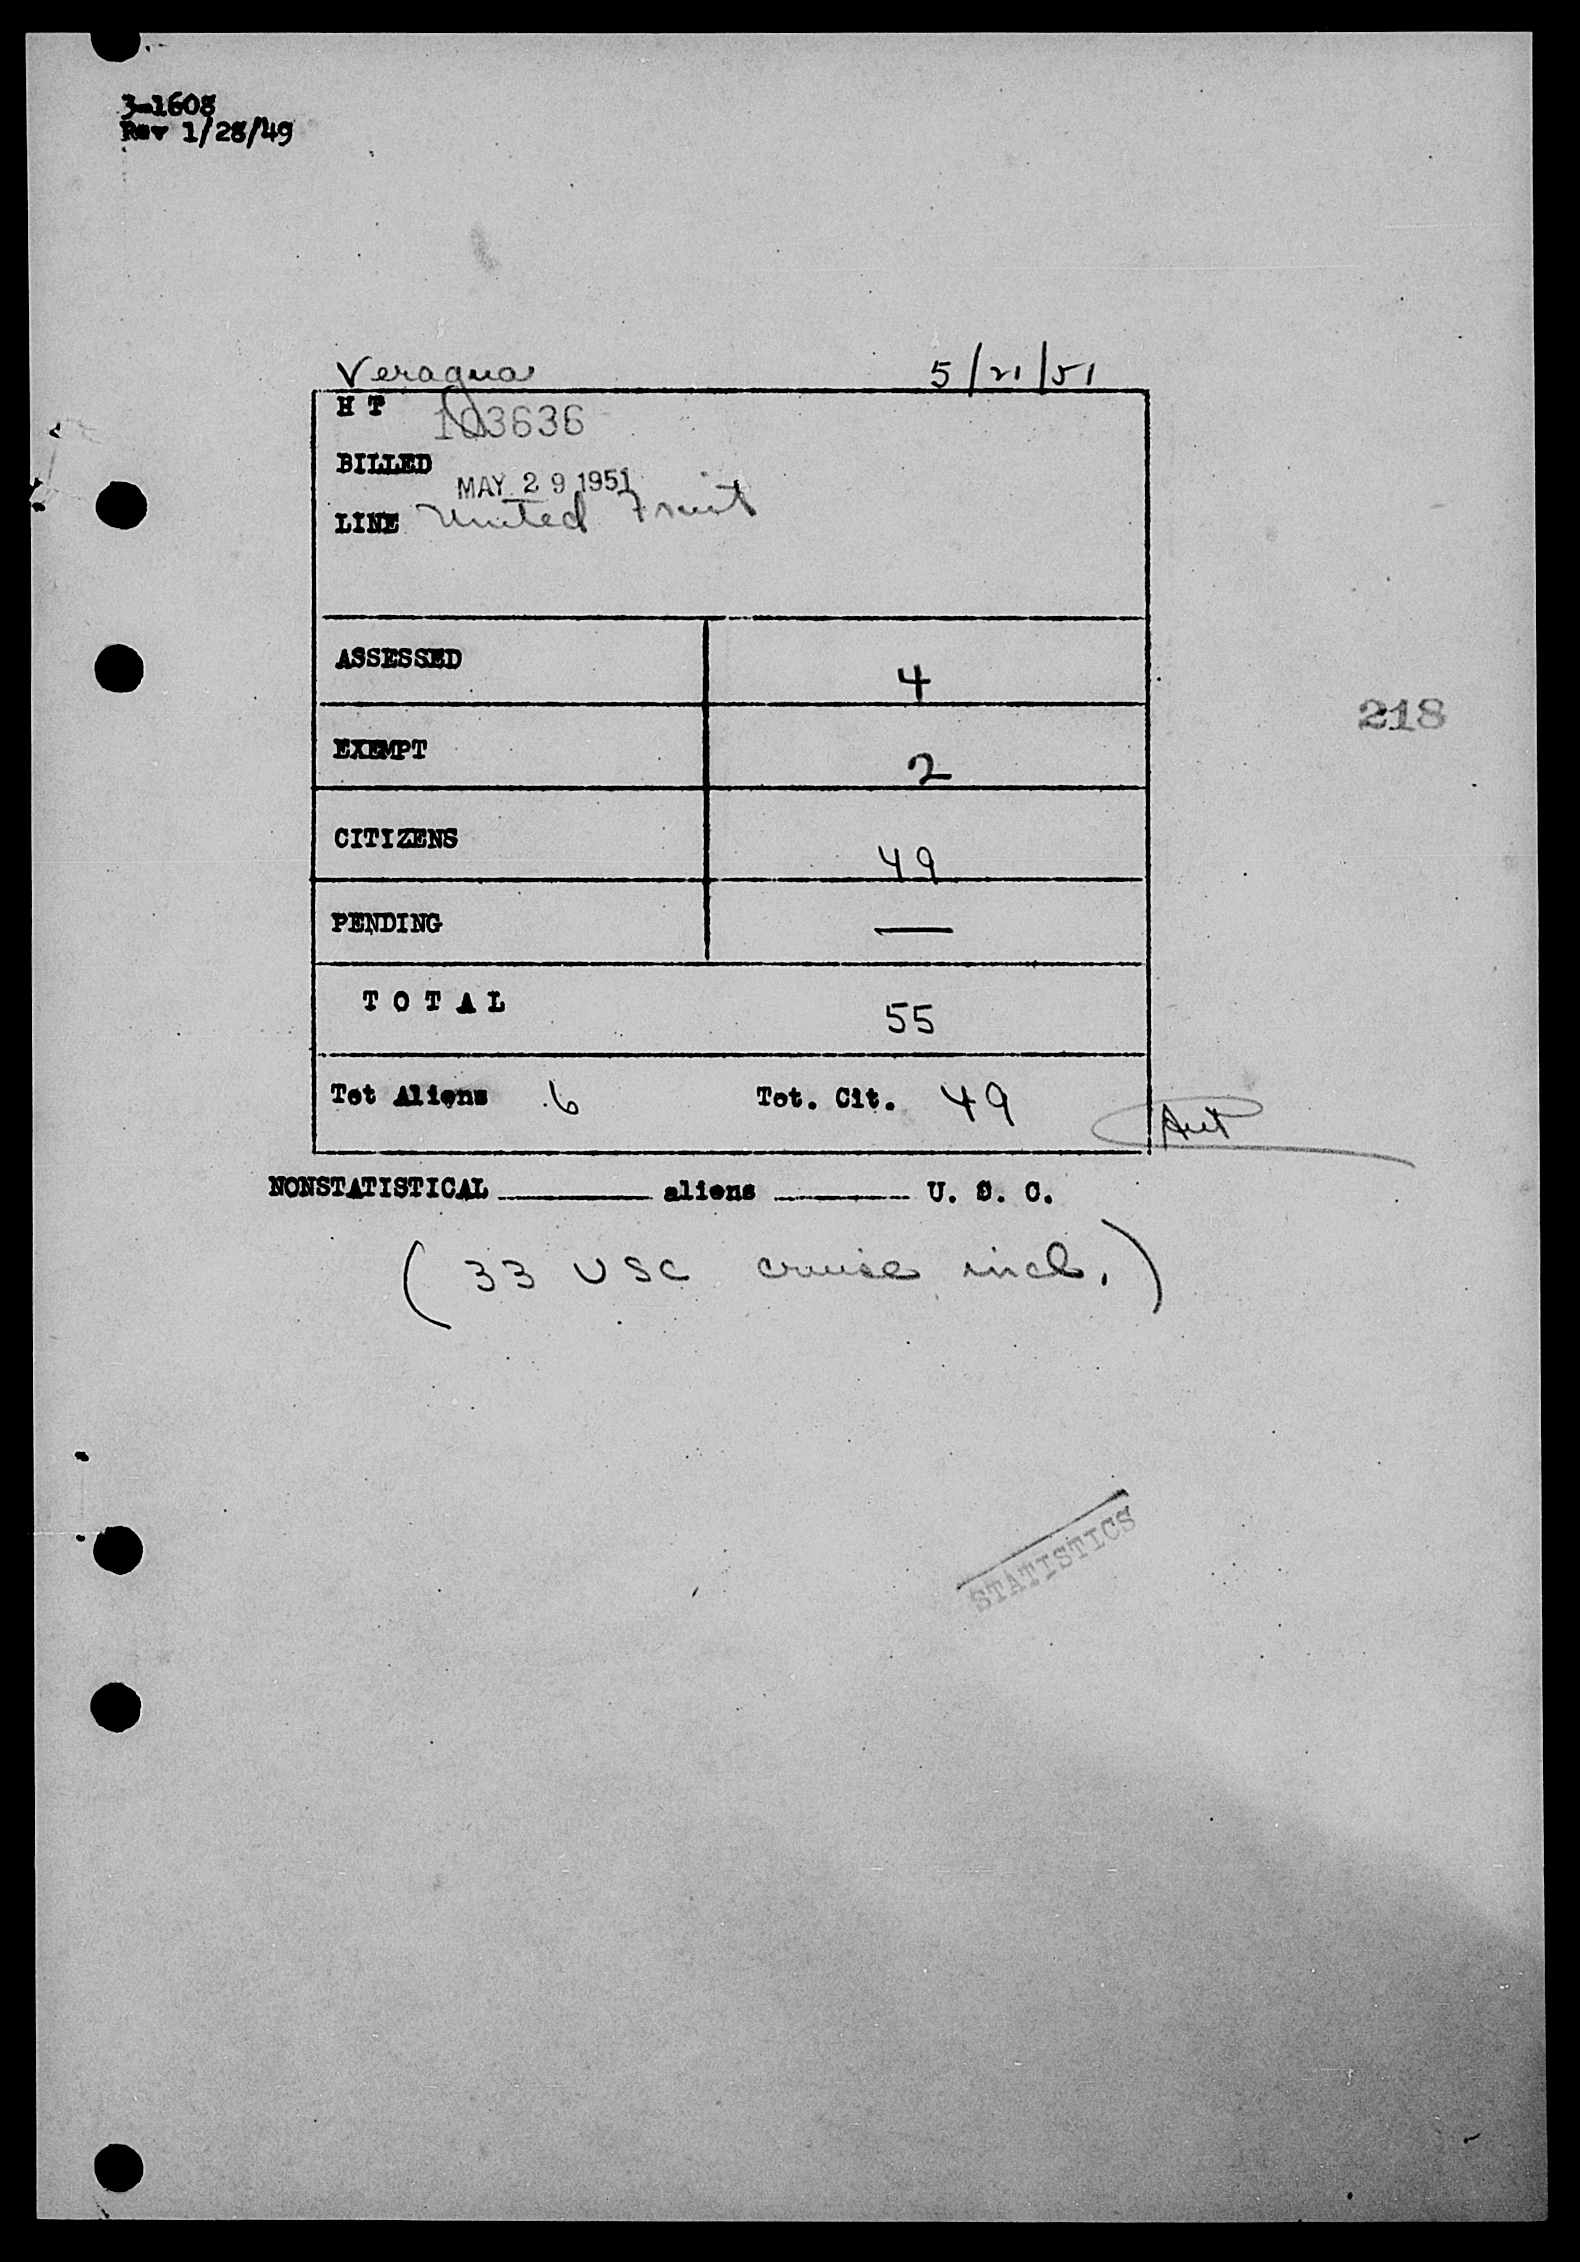 3-1608
Rev 1/28/49
Veragua 5/21/51
H T 103636
BILLED MAY 29 1951
LINE United Fruit
ASSESSED 4
EXEMPT 2
218
CITIZENS 49
PENDING —
T O T A L 55
Tot Aliens 6 Tot. Cit. 49
NONSTATISTICAL ______ aliens ______ U. S. C.
( 33 USC cruise incl. )
STATISTICS